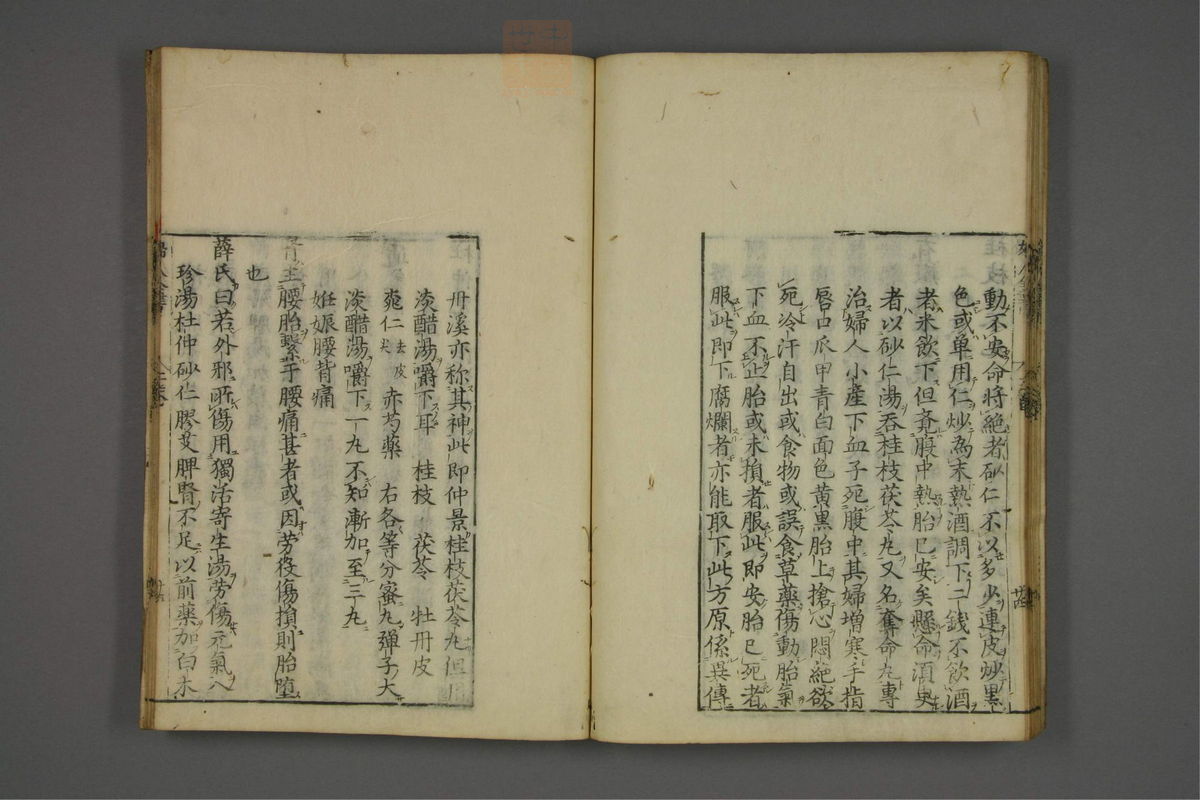 動不安命將絶者砂仁不以多少連皮炒黒
色或単用仁炒為末熱酒調下二銭不飲酒
者米飲下但覚腹中熱胎已安矣懸命湏臾
者以砂仁湯吞桂枝茯苓丸又名奪命丸專
治婦人小産下血子死腹中其婦増寒手指
唇口爪甲青白面色黄黒胎上搶心悶絶欲
死冷汗自出或食物或誤食草薬傷動胎氣
下血不止胎或未損者服此即安胎已死者
服此即下腐爛者亦能取下此方原係異傳
廿四
丹溪亦称其神此即仲景桂枝茯苓丸但用
淡醋湯嚼下耳　桂枝　茯苓　牡丹皮
桃仁去皮尖　赤芍薬　右各等分蜜丸弾子大
淡醋湯嚼下一丸不知漸加至三丸
妊娠腰背痛
腎主腰胎繋于腰痛甚者或因労役傷損則胎堕
也
薛氏曰若外邪所傷用獨活寄生湯労傷元氣八
珍湯杜仲砂仁膠艾脾腎不足以前薬加白木